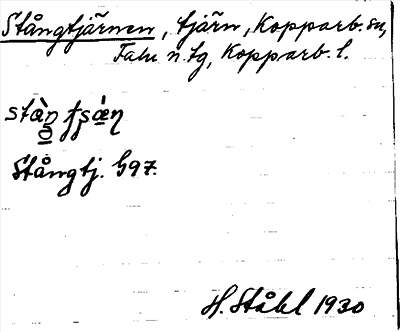 Stångtjärnen, tjärn, Kopparb. sn,
Falu n. tg, Kopparb. l.
Stångtj. G97.
H. Ståhl 1930